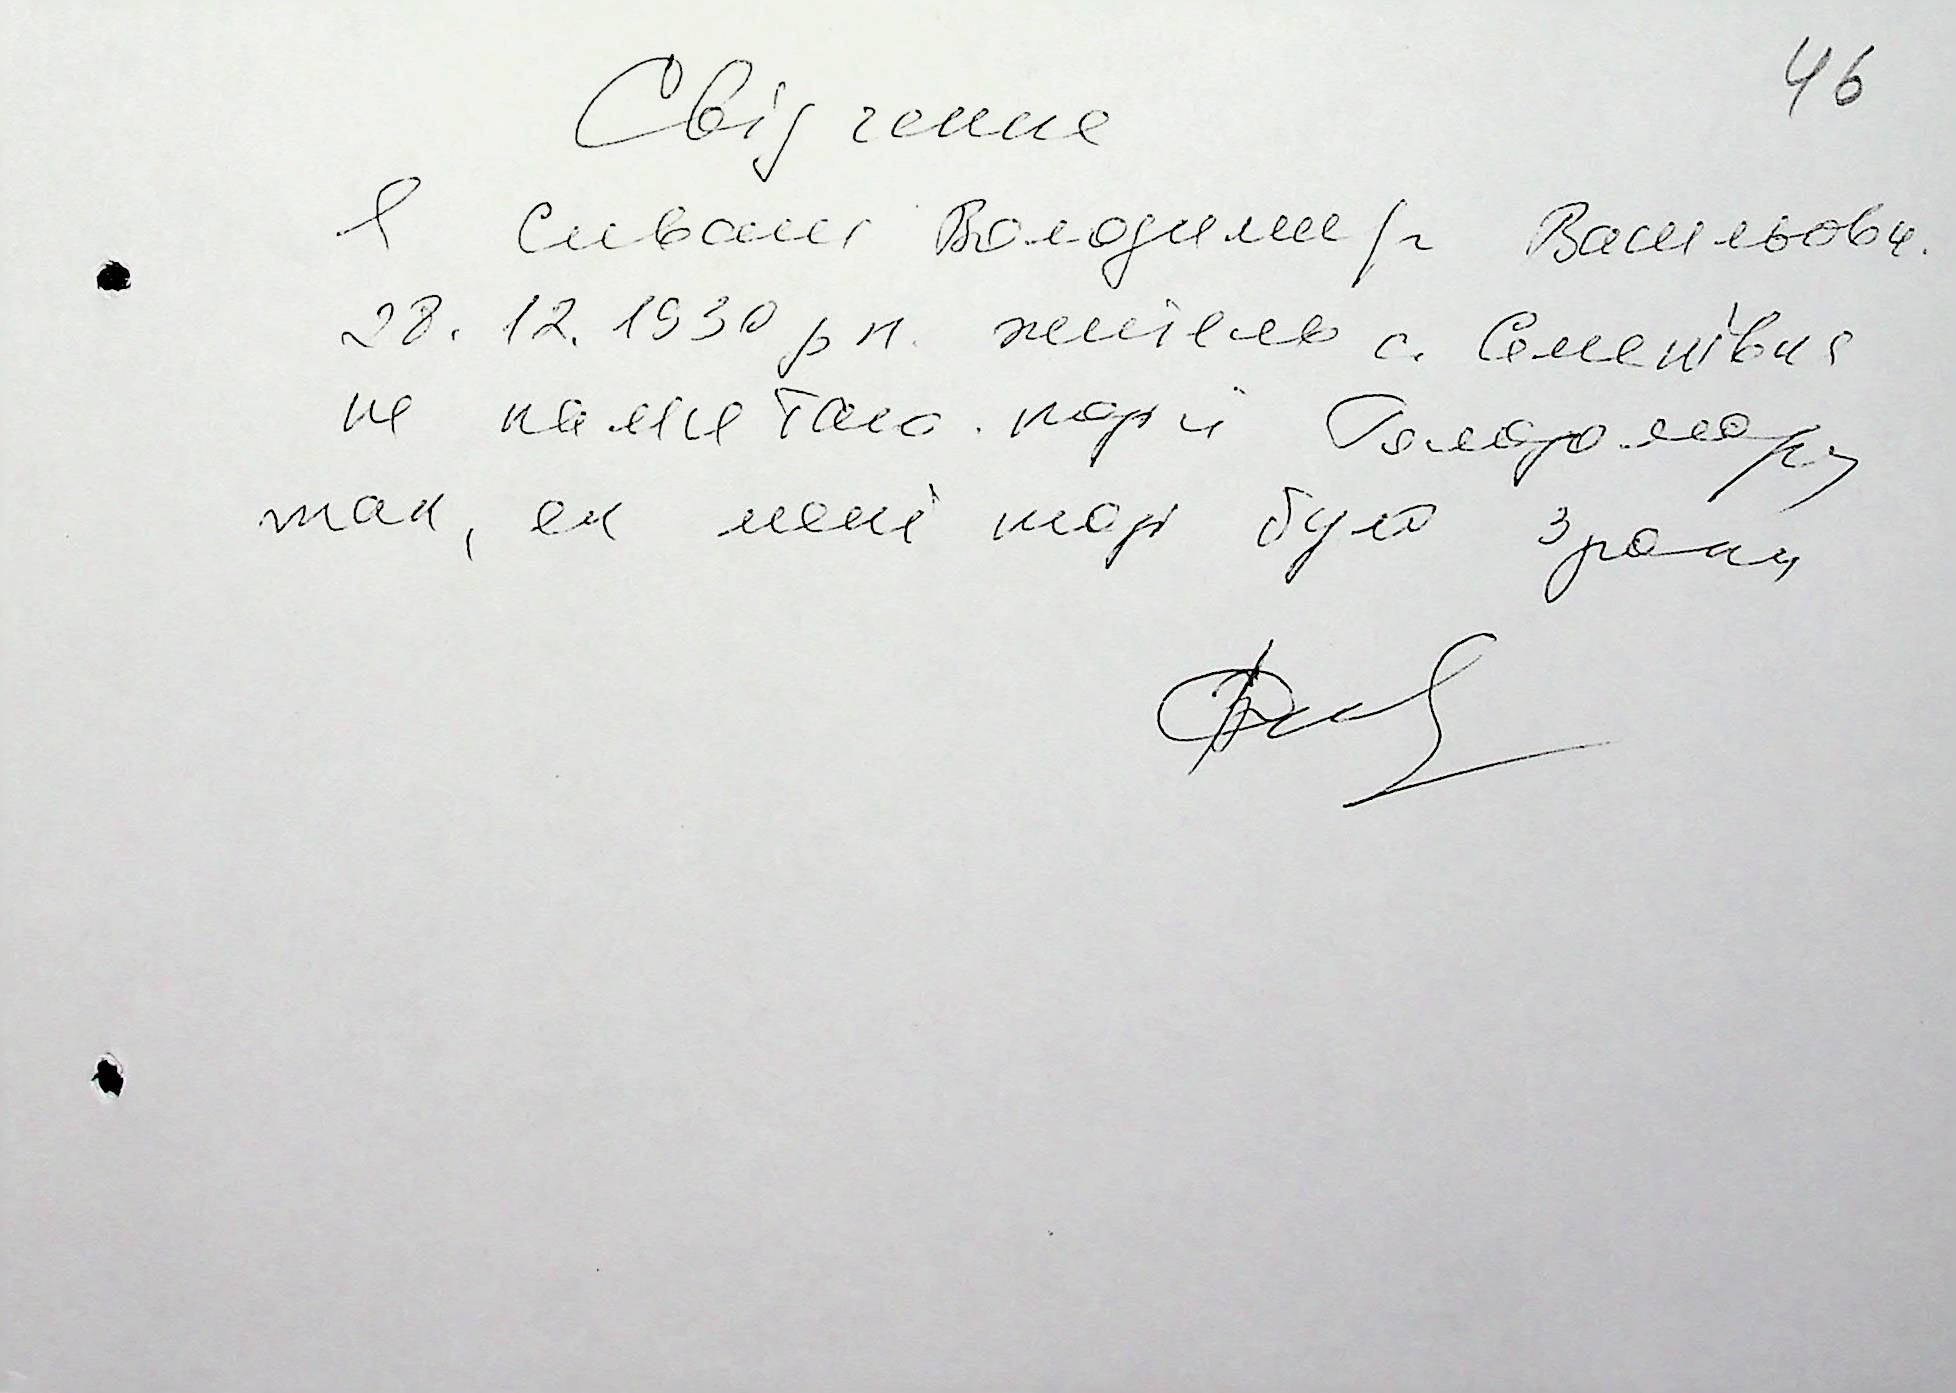 46
Свідчення
Я Сиваш Володимир Васильови.
28.12.1930 рн. житель с. Семенівка
не памєтаю події Голодомору
так, як мені тоді було 3 роки